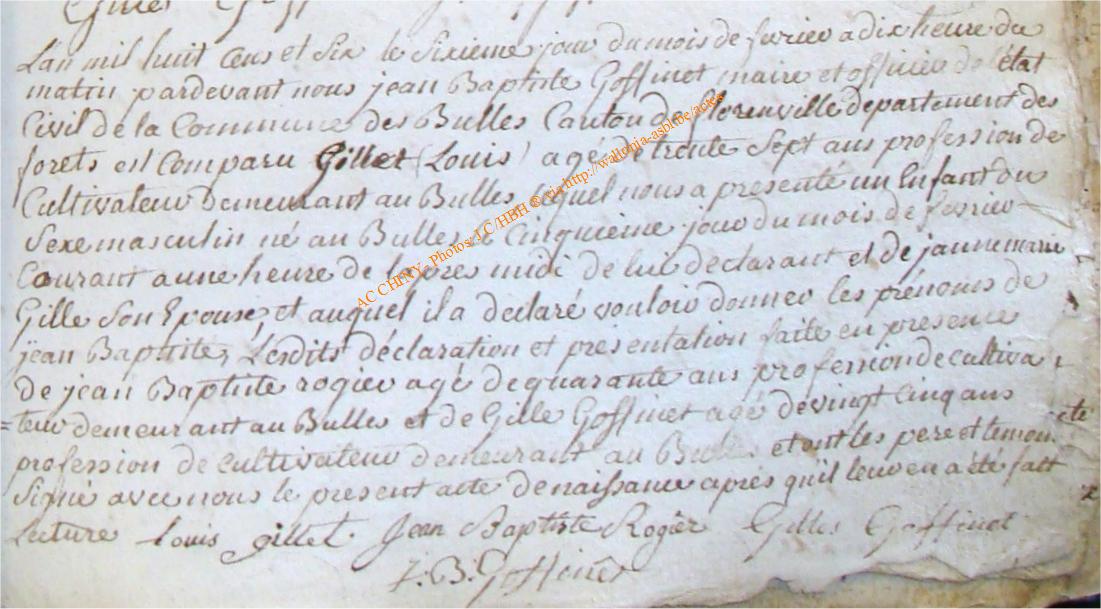 Gilles
L'an mil huit cens et Six le Sixieme jour du mois de fevrier a dix heure du
matin pardevant nous jean Baptiste Goffinet maire et officier de l'état
Civil de la Commune des Bulles Canton de florenville departement des
forets est Comparu Gillet (Louis) agé de trente Sept ans profession de
Cultivateur Demeurant au Bulles lequel nous a presenté un Enfant du
Sexe masculin né au Bulles le Cinquieme jour du mois de fevrier
Courant a une heure de l'apres midi de lui declarant et de jeanne marie
Gille Son Epouse, et auquel il a declaré vouloir donner les prénoms de
jean Baptiste, Lesdits déclaration et présentation faite en presence
de jean Baptiste rogier agé de quarante ans profession de cultiva
=teur demeurant au Bulles et de Gille Goffinet agé de vingt Cinq ans
profession de cultivateur demeurant au Bulles et ont les pere et temoin
Signé avec nous le present acte de naissance aprés qu'il leur en a été fait
Lecture Louis gillet. Jean Baptiste Rogier Gilles Goffinet
J: B: Goffinet
AC CHINY - Photos J.C/HBH © via http://wallonia-asbl.be/actes